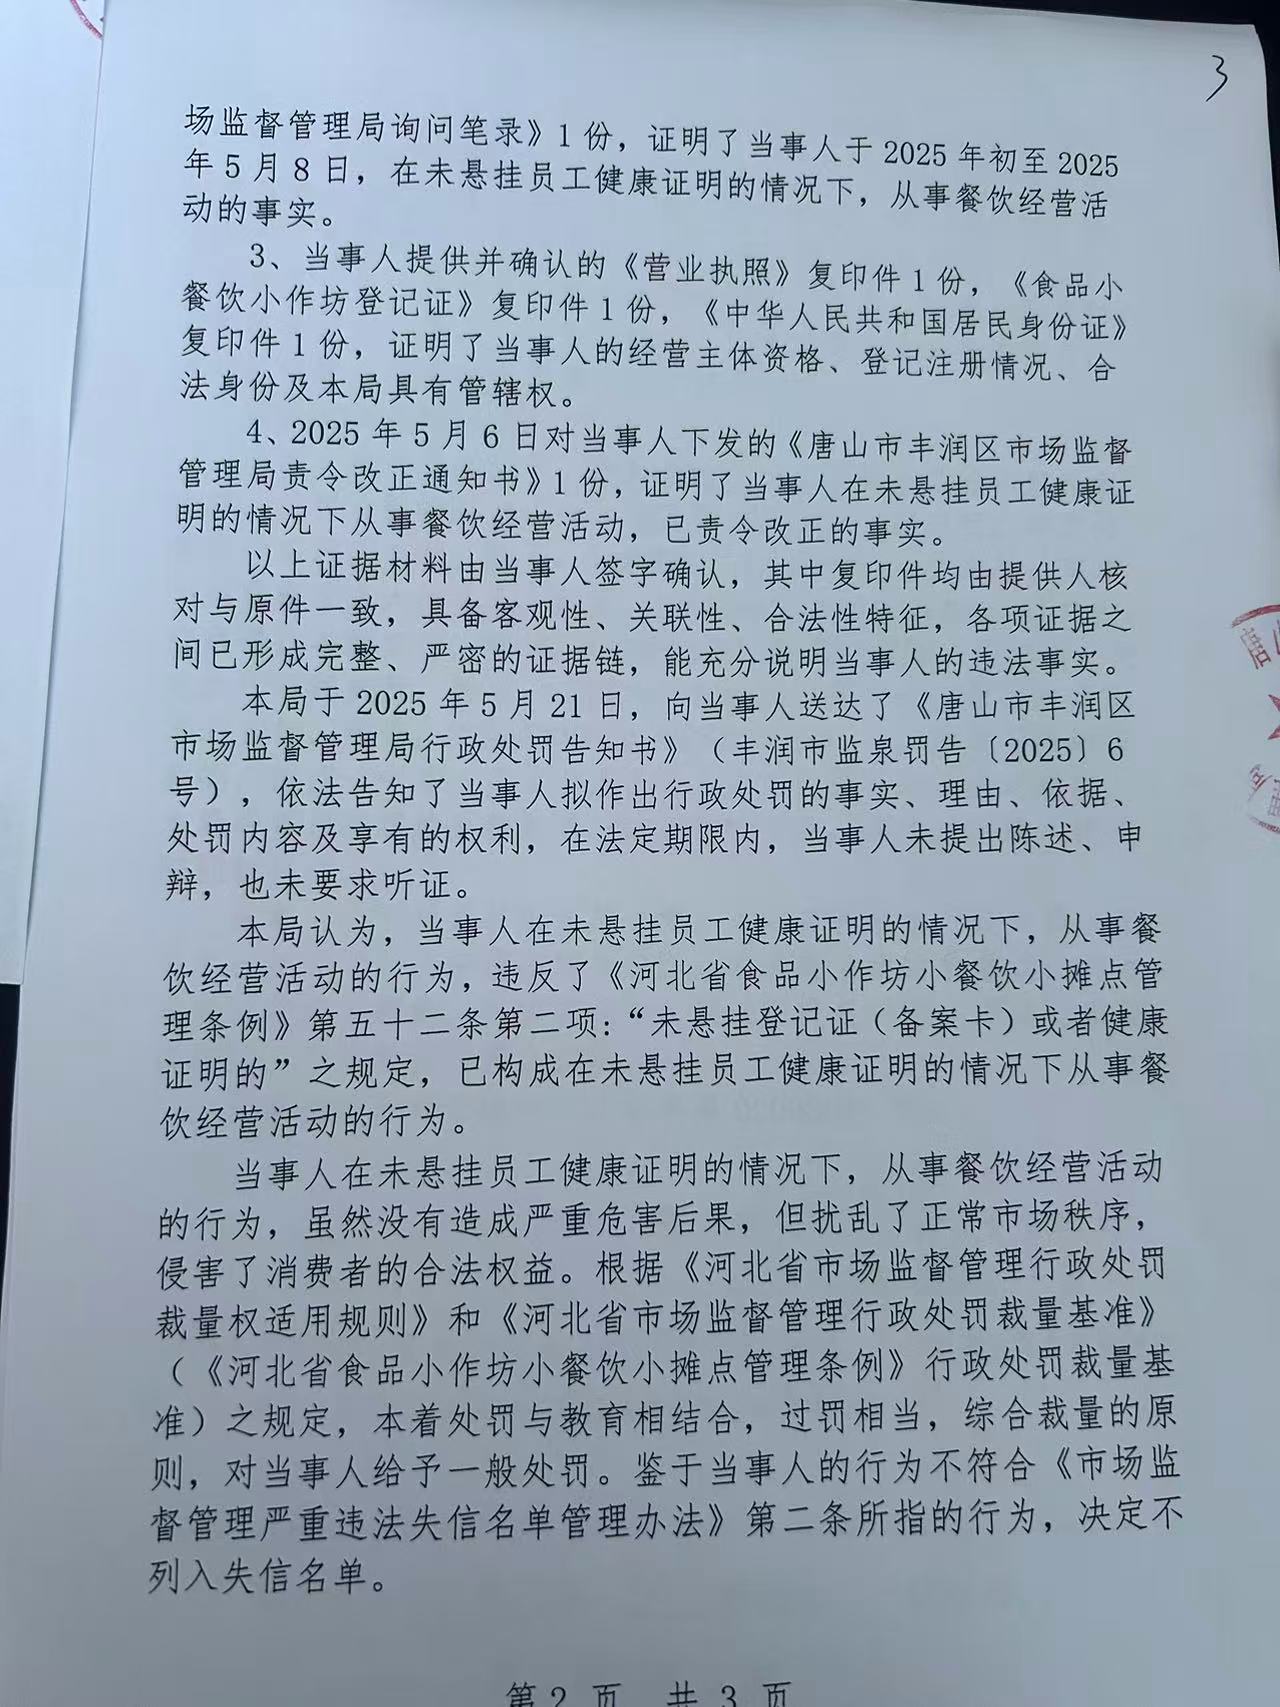 3
场监督管理局询问笔录》1份，证明了当事人于2025年初至2025
年5月8日，在未悬挂员工健康证明的情况下，从事餐饮经营活
动的事实。
3、当事人提供并确认的《营业执照》复印件1份，《食品小
餐饮小作坊登记证》复印件1份，《中华人民共和国居民身份证》
复印件1份，证明了当事人的经营主体资格、登记注册情况、合
法身份及本局具有管辖权。
4、2025年5月6日对当事人下发的《唐山市丰润区市场监督
管理局责令改正通知书》1份，证明了当事人在未悬挂员工健康证
明的情况下从事餐饮经营活动，已责令改正的事实。
以上证据材料由当事人签字确认，其中复印件均由提供人核
对与原件一致，具备客观性、关联性、合法性特征，各项证据之
间已形成完整、严密的证据链，能充分说明当事人的违法事实。
本局于2025年5月21日，向当事人送达了《唐山市丰润区
市场监督管理局行政处罚告知书》（丰润市监泉罚告〔2025〕6
号），依法告知了当事人拟作出行政处罚的事实、理由、依据、
处罚内容及享有的权利，在法定期限内，当事人未提出陈述、申
辩，也未要求听证。
本局认为，当事人在未悬挂员工健康证明的情况下，从事餐
饮经营活动的行为，违反了《河北省食品小作坊小餐饮小摊点管
理条例》第五十二条第二项：“未悬挂登记证（备案卡）或者健康
证明的”之规定，已构成在未悬挂员工健康证明的情况下从事餐
饮经营活动的行为。
当事人在未悬挂员工健康证明的情况下，从事餐饮经营活动
的行为，虽然没有造成严重危害后果，但扰乱了正常市场秩序，
侵害了消费者的合法权益。根据《河北省市场监督管理行政处罚
裁量权适用规则》和《河北省市场监督管理行政处罚裁量基准》
（《河北省食品小作坊小餐饮小摊点管理条例》行政处罚裁量基
准）之规定，本着处罚与教育相结合，过罚相当，综合裁量的原
则，对当事人给予一般处罚。鉴于当事人的行为不符合《市场监
督管理严重违法失信名单管理办法》第二条所指的行为，决定不
列入失信名单。
第2页 共3页
唐山